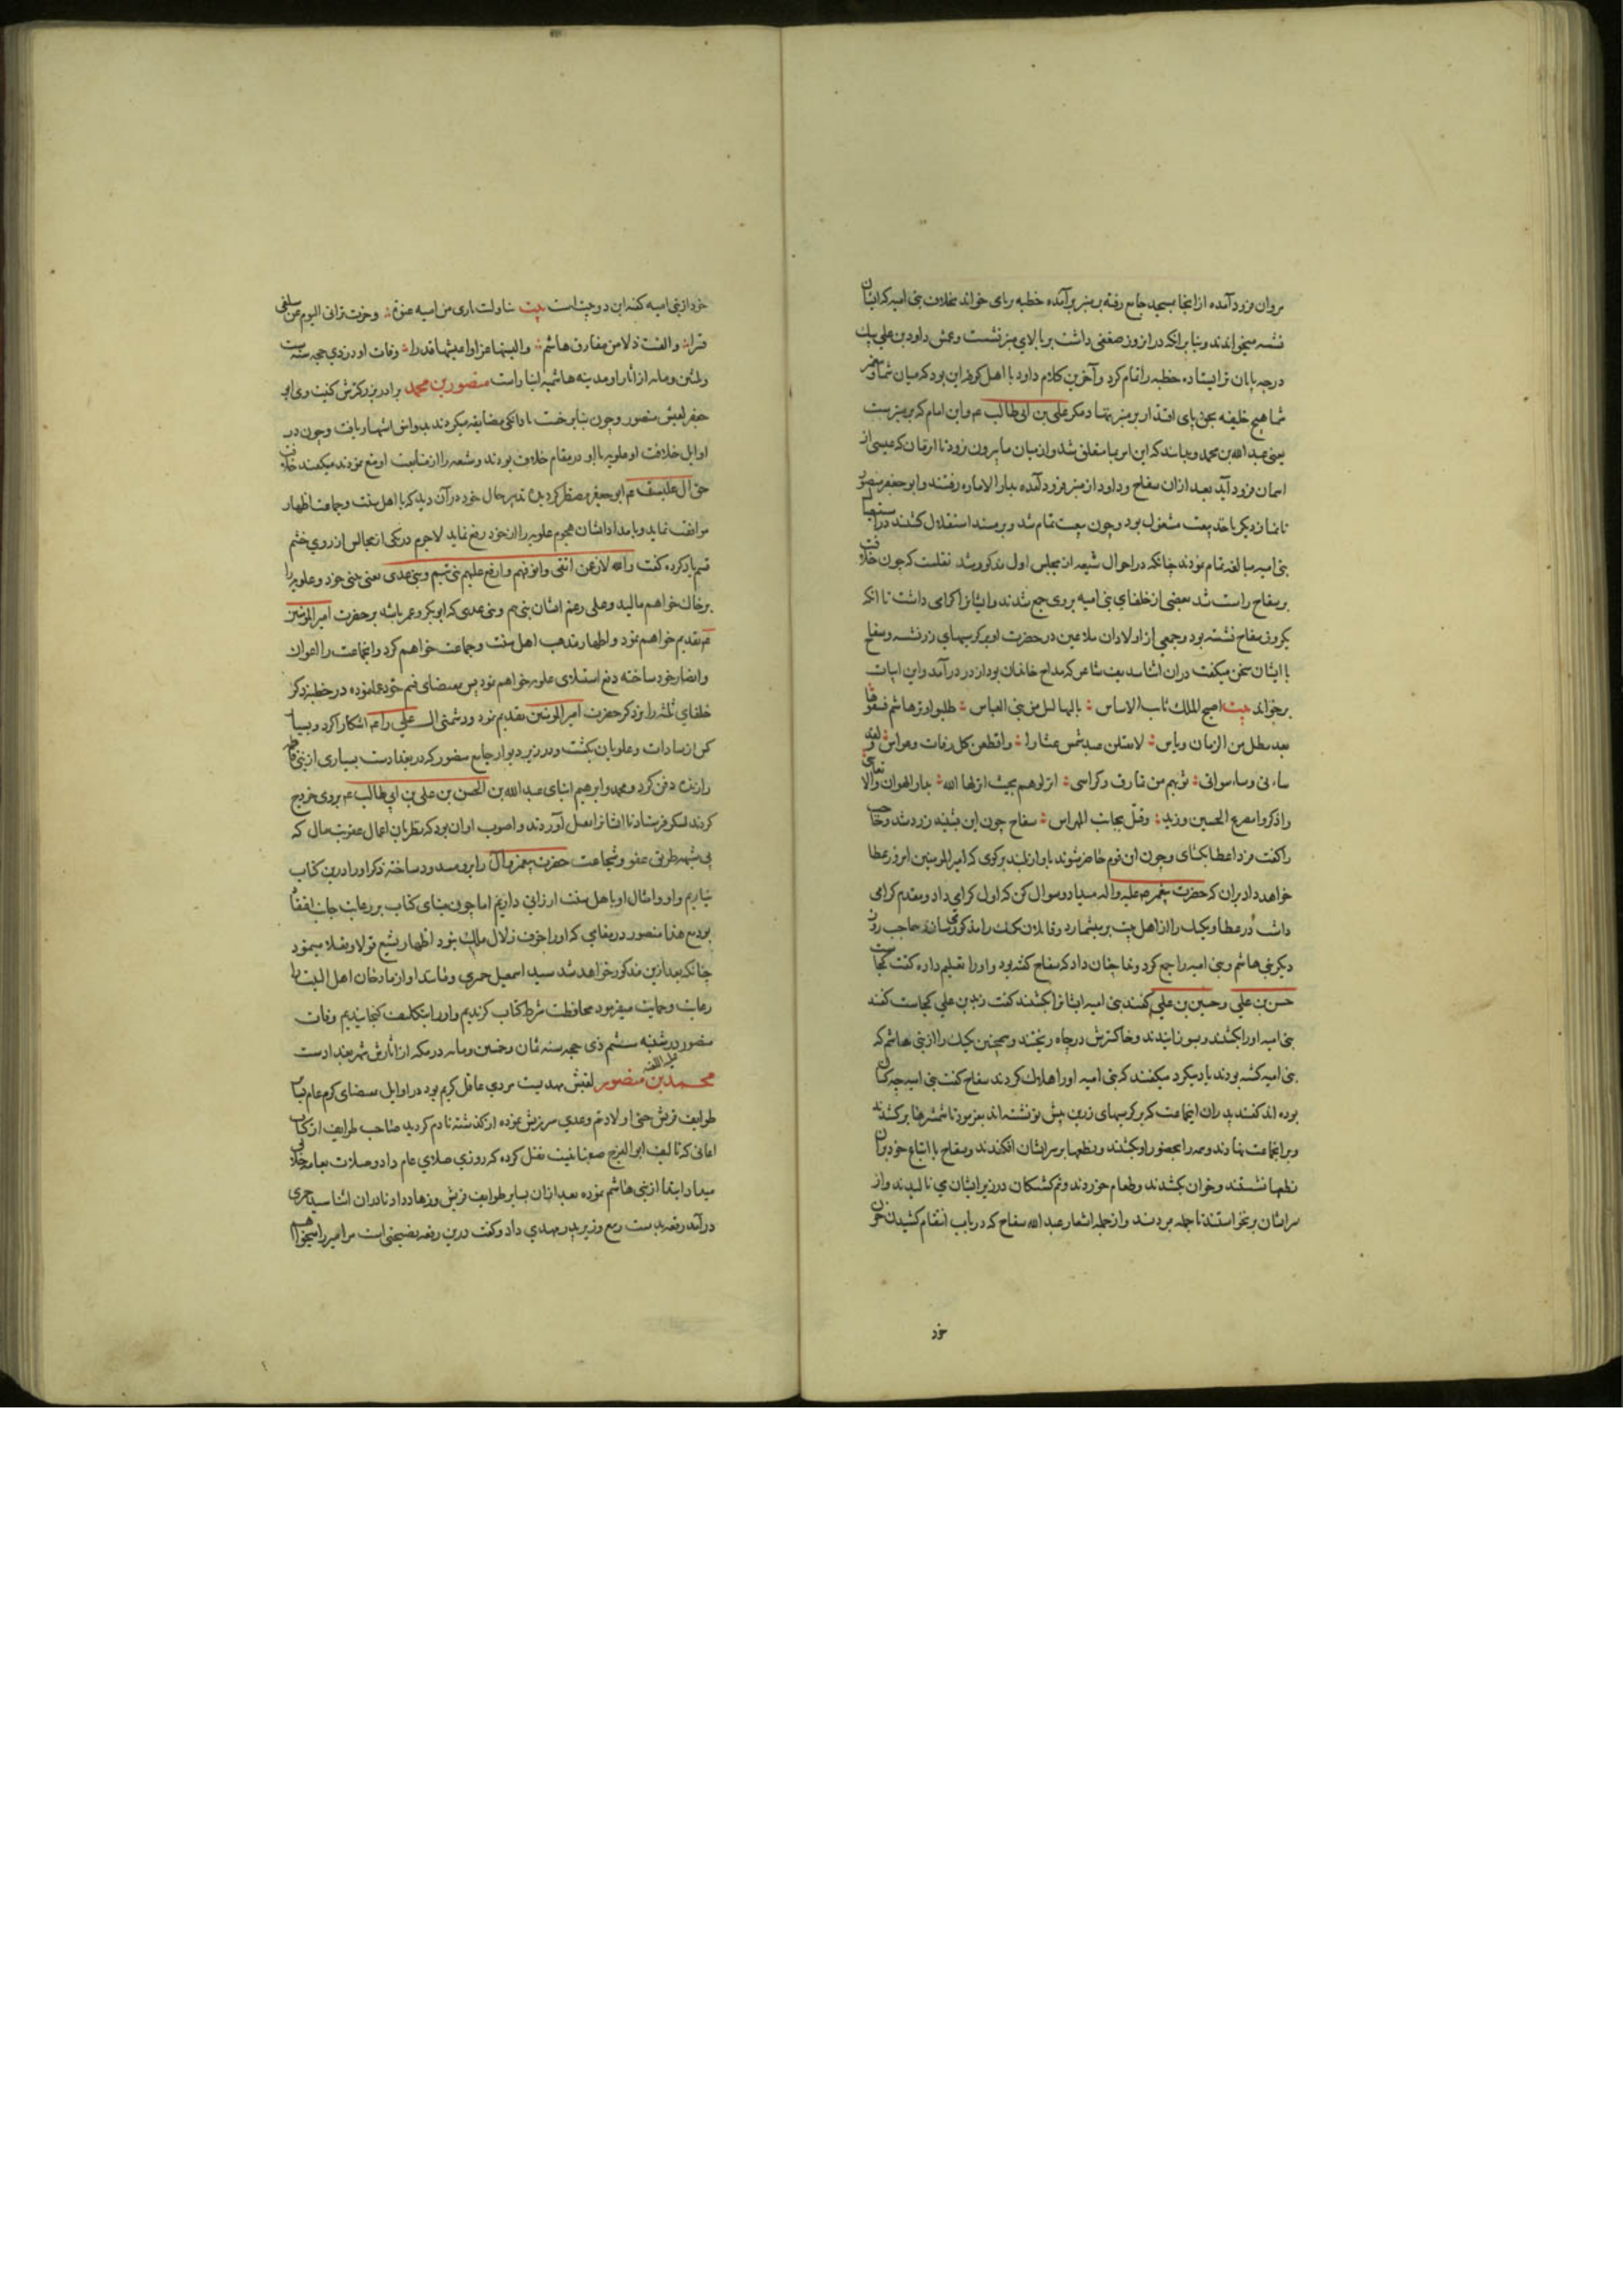 مروان فرود آمده از انجا بمسجد جامع رفته بر منبر برآمده خطبه برپای خواند بخلاف بنی امیه که ایشان
نشسته میخواندند و بنا برانکه دران روز ضعفی داشت بر بالای منبر نشست و عمش داود بن علی بیک
درجه پایان تر ایستاده خطبه را تمام کرد و آخرین کلام داود با اهل کوفه این بود که میان شما و پیغمبر
شما هیچ خلیفه بحق پای اقتدار بر منبر ننهاد مگر علی بن ابی طالب ع م و این امام که بر منبرست
یعنی عبد الله بن محمد و بدانید که این امر بما متعلق شد و از میان ما بیرون نرود تا ان زمان که عیسی از
اسمان فرود آید بعد ازان سفاح و داود از منبر فرود آمده بدار الاماره رفتند و ابو جعفر منصور
تا نماز دیگر باخذ بیعت مشغول بود و چون بیعت تمام شد و بر مسند استقلال نشستند در استیصال
بنی امیه مبالغه تمام نمودند چنانکه در احوال شیعه از مجلس اول مذکور شد نقلست که چون خلافت
بر سفاح راست شد بعضی از خلفای بنی امیه بر وی جمع شدند و ایشانرا گرامی داشت تا انکه
یکروز سفاح نشسته بود و جمعی از اولادان ملاعین در حضرت او بر کرسیهای زر نشسته و سفاح
با ایشان سخن میگفت دران اثنا سدیف شاعر که مداح خاندان بود از در درآمد و این ابیات
برخواند بیت اصبح الملک ثابت الاساس بالبهالیل من بنی العباس طلبوا وتر هاشم فشفوها
بعد میل من الزمان ویاس لا تقیلن عبد شمس عثارا واقطعن کل رقلت وغراس ولقد
ساءنی وساء سوائی قربهم من نمارق وکراسی انزلوهم بحیث انزلها الله بدار الهوان والاتعاس
واذکروا مصرع الحسین وزید وقتیل بجانب المهراس سفاح چون این بشنید زرد شد و حاجب
را گفت در عطا بگشای و چون این قوم حاضر شوند باواز بلند بگوی که امیر المومنین امروز عطا
خواهد داد بران که حضرت پیغمبر ص علیه واله میداد و سوال کن که اول گرامی داد و مقدم گرامی
داشت در عطا و یک یک را از اهل بیت بر میشمارد و فلان یک را مذکور میسازد حاجب روز
دیگر بنی هاشم و بنی امیه را جمع کرد و ندا چنان داد که سفاح گفته بود و او را تعلیم داده گفت کجاست
حسن بن علی و حسین بن علی گفتند بنی امیه ایشانرا بکشتند گفت زید بن علی کجاست گفتند
بنی امیه او را بکشتند و بسوزانیدند و خاکسترش در چاه ریختند و همچنین یک یک را از بنی هاشم که
بنی امیه کشته بودند یاد میکرد میگفتند که بنی امیه او را هلاک کردند سفاح گفت بنی امیه چه کسان
بوده اند گفتند پدران اینجماعت که بر کرسیهای زرین پیش تو نشسته اند بفرمود تا شمشیرها برکشند
و برانجماعت نهادند و همه را بحضور او بکشتند و نطعها بر سر ایشان افکندند و سفاح با اتباع خود بران
نطعها نشستند و خوان بکشیدند و طعام خوردند و نیم کشتگان در زیر ایشان می نالیدند و از
سر ایشان برنخواستند تا جمله مردند و از جمله اشعار عبد الله سفاح که در باب انتقام کشیدن خون
خود
خود از بنی امیه گفته این دو بیت است بیت تناولت ثاری من امیه عنوة وحزت تراثی الیوم عن سلفی
قسرا والقیت ذلا من مفارق هاشم والبستها عزا واعلیتها قدرا وفات او در ذی حجه سنه ست
وثلثین ومایه از آثار او مدینه هاشمیه انبار است منصور بن محمد برادر بزرگترش کنیت وی ابو
جعفر لقبش منصور و چون بنا بر خست با دانکی مضایقه میکردند بدوانق اشتهار یافت و چون در
اوایل خلافت او علویه با او در مقام خلاف بودند و شیعه را از متابعت او منع نمودند میگفتند خلافت
حق آل علیست ع م ابو جعفر مضطر گردیده تدبیر حال خود در آن دید که با اهل سنت و جماعت اظهار
موافقت نماید و بامداد ایشان هجوم علویه را از خود رفع نماید لا جرم در یکی از مجالس از روی خشم
قسم یاد کرده گفت والله لارغمن انفی وانوفهم وارفع علیهم بنی تیم وبنی عدی یعنی بینی خود و علویه را
بر خاک خواهم مالید و علی رغم ایشان بنی تیم و بنی عدی که ابوبکر و عمر باشد بر حضرت امیر المومنین
ع م تقدیم خواهم نمود و اظهار مذهب اهل سنت و جماعت خواهم کرد و اینجماعت را اعوان
و انصار خود ساخته دفع استیلای علویه خواهم نمود پس بمقتضای قسم خود عمل نموده در خطبه ذکر
خلفای ثلثه را بر ذکر حضرت امیر المومنین تقدیم نمود و دشمنی ال علی را ع م اشکارا کرد و بسیا
کس از سادات و علویان بکشت و در زیر دیوار جامع منصور که در بغدادست بسیاری از بنی فاطمه
را زنده دفن کرد و محمد و ابرهیم ابنای عبد الله بن الحسن بن علی بن ابی طالب ع م بر وی خروج
کردند لشکر فرستاد تا ایشانرا بقتل آوردند و اصوب اوان بود که نظر بان اعمال عقوبت مال که
بی شبهه طریق عفو و شفاعت حضرت پیغمبر و آل را برو مسدود ساخته ذکر او را درین کتاب
نیاریم و او و امثال او باهل سنت ارزانی داریم اما چون بنای کتاب بر رعایت جانب افقا
بود مع هذا منصور در بقای که او را خوف زلال ملک نبود اظهار تشیع قولا و فعلا مینمود
چنانکه بعد ازین مذکور خواهد شد سید اسمعیل حمیری و مانند او از مادحان اهل البیت را
رعایت و حمایت میفرمود محافظت شرط کتاب کردیم و او را بتکلف گنجانیدیم وفات
منصور در شنبه ششم ذی حجه سنه ثمان وخمسین ومایه در مکه از آثارش شهر بغداد است
محمد بن منصور لقبش مهدیست مردی عاقل کریم بود در اوایل بمقتضای کرم عام با
طوایف قریش حتی اولاد تیم و عدی سرزنش نموده از گذشته نادم گردید صاحب طوایف از کتاب
اغانی که تالیف ابو الفرج صفهانیست نقل کرده که روزی صلای عام داد و صلات بعام خلایق
میداد ابتدا از بنی هاشم نموده بعد ازان بسایر طوایف قریش وزرها داد و نا دران اثنا سید حمیری
درآمد رقعه بدست ربیع وزیر پدر مهدی داد و گفت درین رقعه نصیحتی است مر امیر را میخواهم